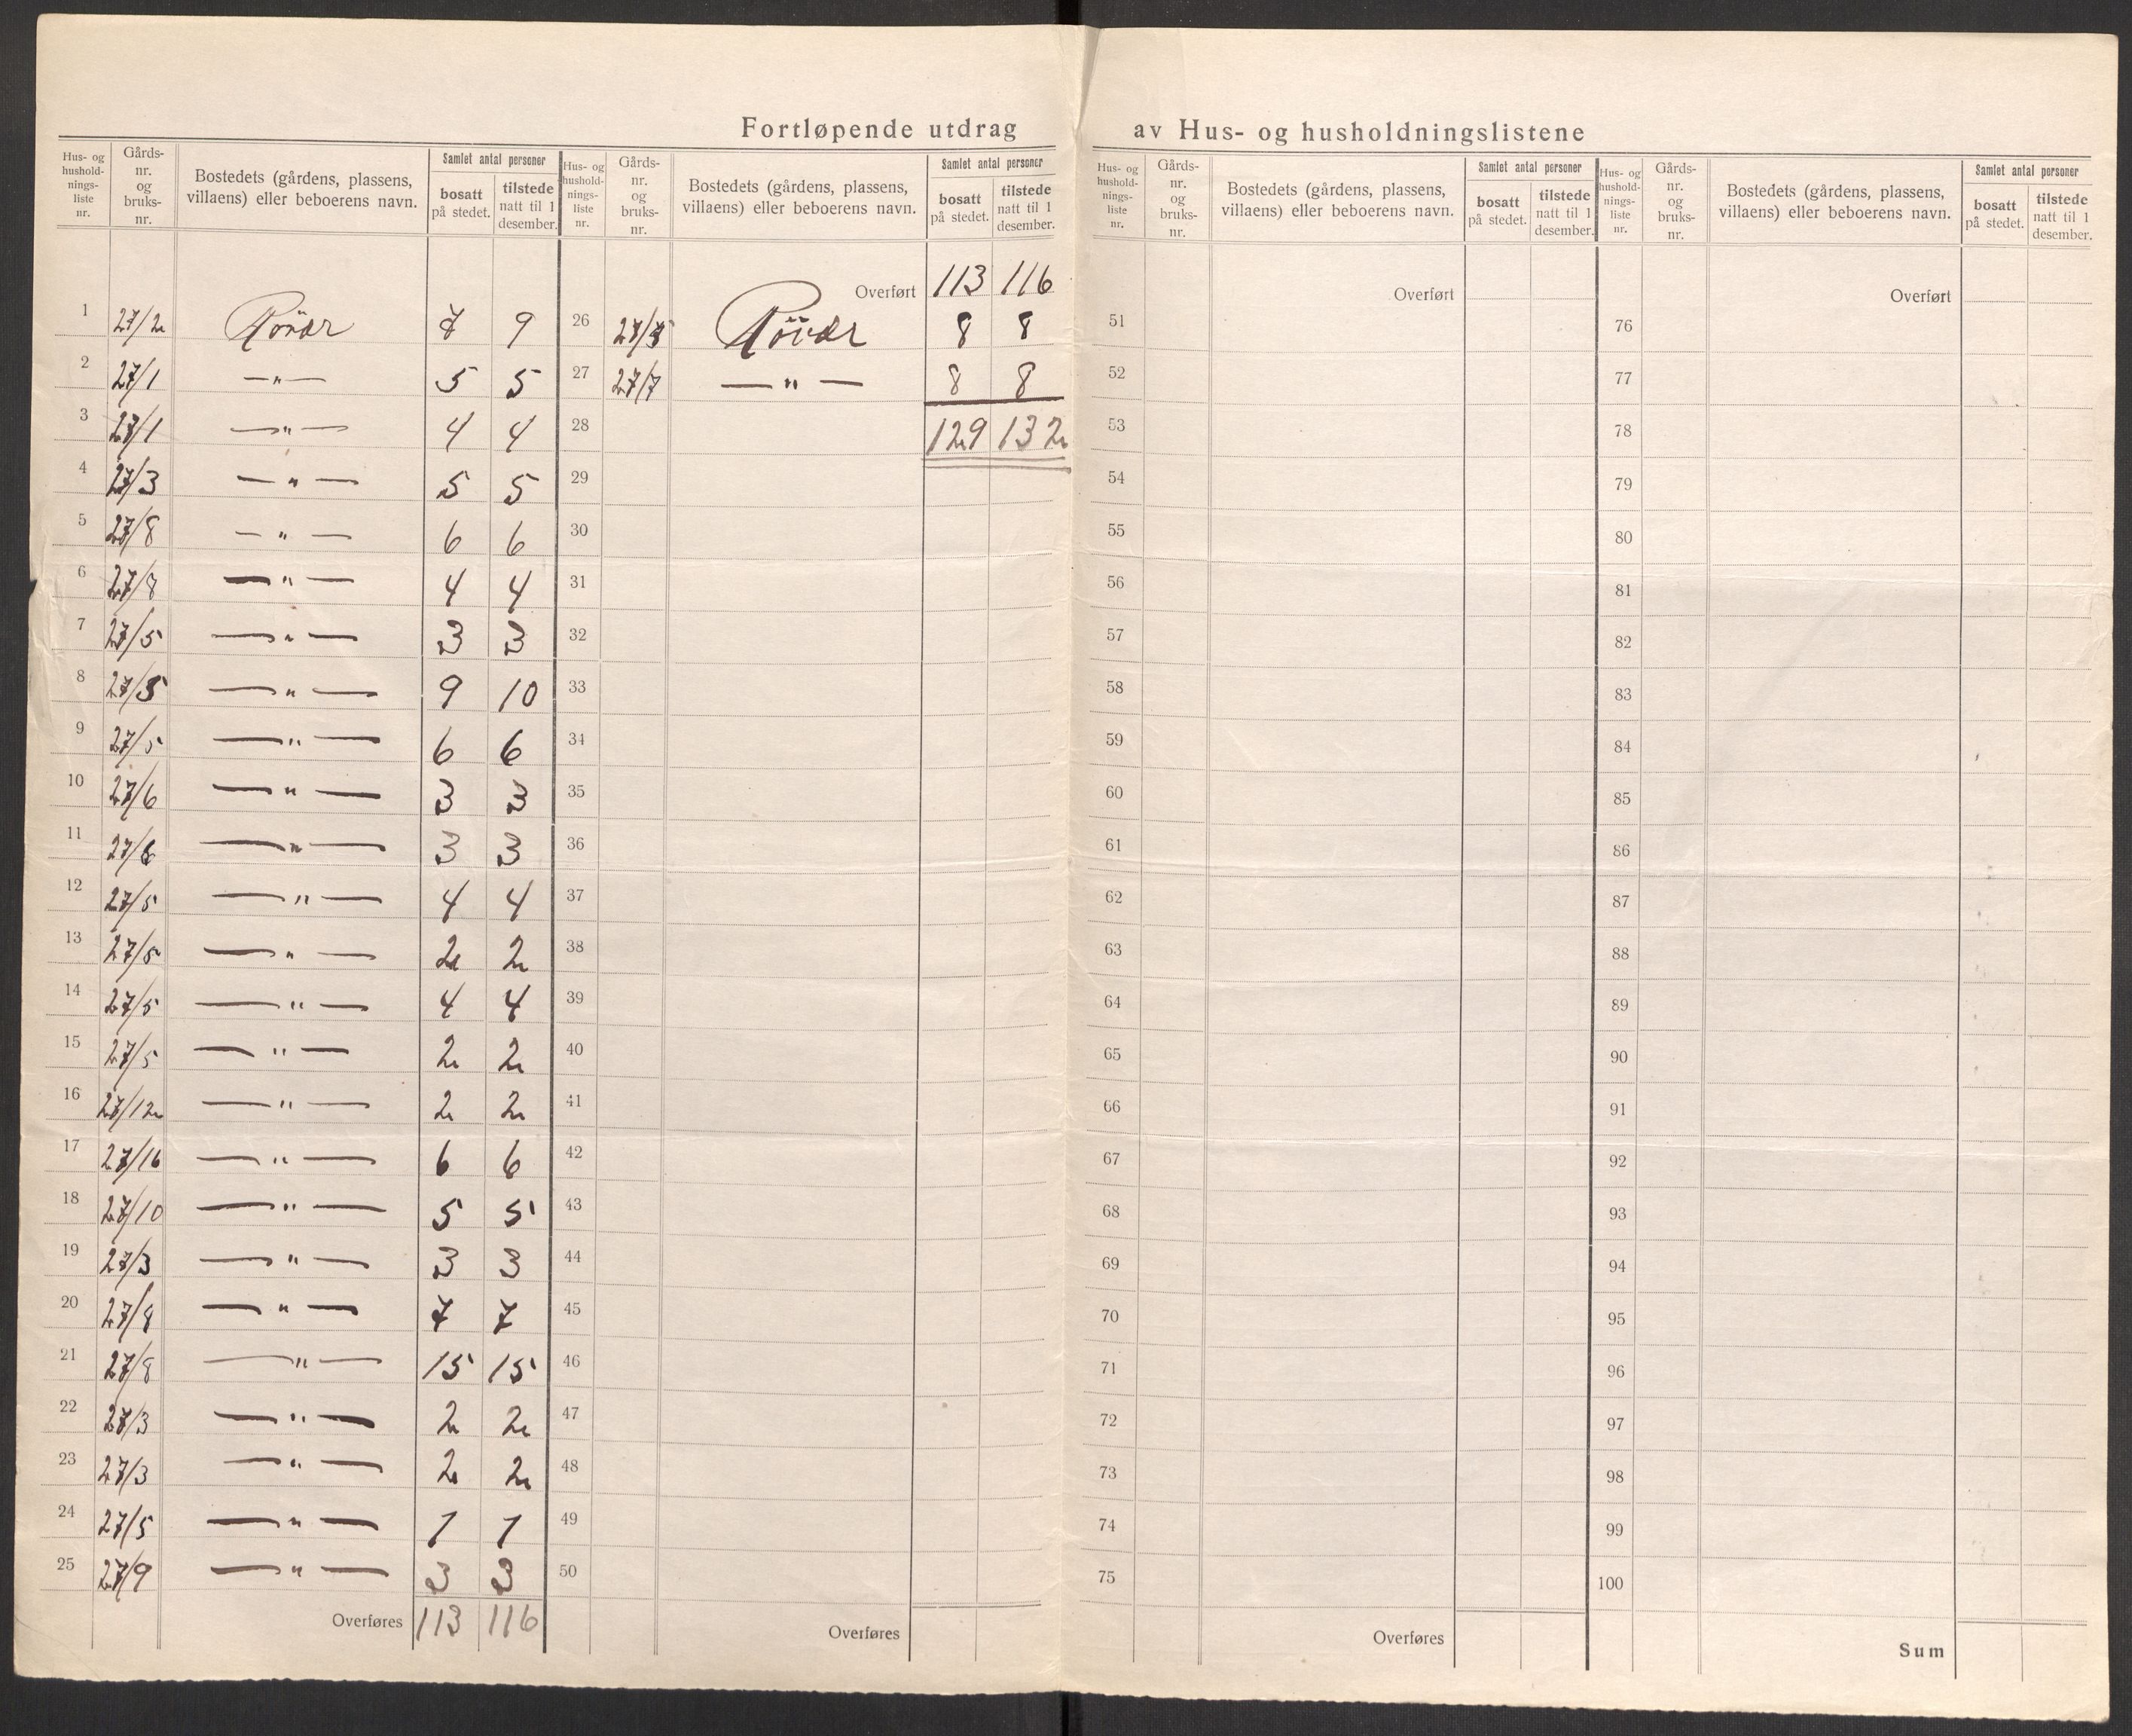 Fortløpende utdrag av Hus- og husholdningslistene
Hus- og hushold- nings- liste nr. | Gårds- nr. og bruks- nr. | Bostedets (gårdens, plassens, villaens) eller beboerens navn. | Samlet antal personer | bosatt på stedet. | tilstede natt til 1 desember.
1 27/2 Röver 7 9
2 27/1 —"— 5 5
3 27/1 —"— 4 4
4 27/3 —"— 5 5
5 27/8 —"— 6 6
6 27/8 —"— 4 4
7 27/5 —"— 3 3
8 27/5 —"— 9 10
9 27/5 —"— 6 6
10 27/6 —"— 3 3
11 27/6 —"— 3 3
12 27/5 —"— 4 4
13 27/5 —"— 2 2
14 27/5 —"— 4 4
15 27/5 —"— 2 2
16 27/12 —"— 2 2
17 27/16 —"— 6 6
18 27/10 —"— 5 5
19 27/3 —"— 3 3
20 27/8 —"— 7 7
21 27/8 —"— 15 15
22 27/3 —"— 2 2
23 27/3 —"— 2 2
24 27/5 —"— 1 1
25 27/9 —"— 3 3
Overføres 113 116
Hus- og hushold- nings- liste nr. | Gårds- nr. og bruks- nr. | Bostedets (gårdens, plassens, villaens) eller beboerens navn. | Samlet antal personer | bosatt på stedet. | tilstede natt til 1 desember.
Overført 113 116
26 Röver 8 8
27 27/7 —"— 8 8
28 129 132
29
30
31
32
33
34
35
36
37
38
39
40
41
42
43
44
45
46
47
48
49
50
Overføres
Hus- og hushold- nings- liste nr. | Gårds- nr. og bruks- nr. | Bostedets (gårdens, plassens, villaens) eller beboerens navn. | Samlet antal personer | bosatt på stedet. | tilstede natt til 1 desember.
Overført
51
52
53
54
55
56
57
58
59
60
61
62
63
64
65
66
67
68
69
70
71
72
73
74
75
Overføres
Hus- og hushold- nings- liste nr. | Gårds- nr. og bruks- nr. | Bostedets (gårdens, plassens, villaens) eller beboerens navn. | Samlet antal personer | bosatt på stedet. | tilstede natt til 1 desember.
Overført
76
77
78
79
80
81
82
83
84
85
86
87
88
89
90
91
92
93
94
95
96
97
98
99
100
Sum